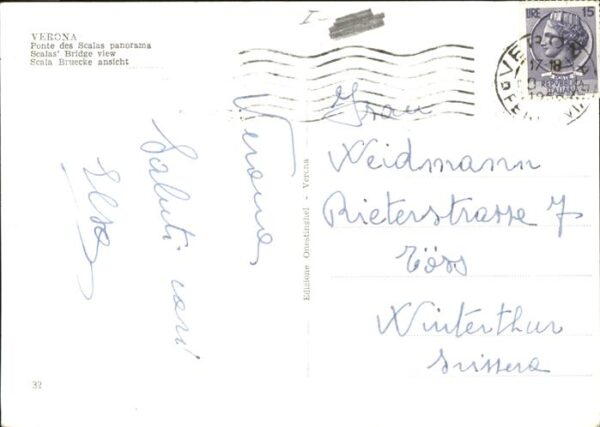 VERONA
Ponte des Scalas panorama
Scalas' Bridge view
Scala Bruecke ansicht
LIRE 15
REPVBBLICA
ITALIANA
17-18
Verona
Saluti cari
Elsa
Edizione Onestinghel - Verona
Frau
Weidmann
Rieterstrasse 7
Töss
Winterthur
Svissera
32